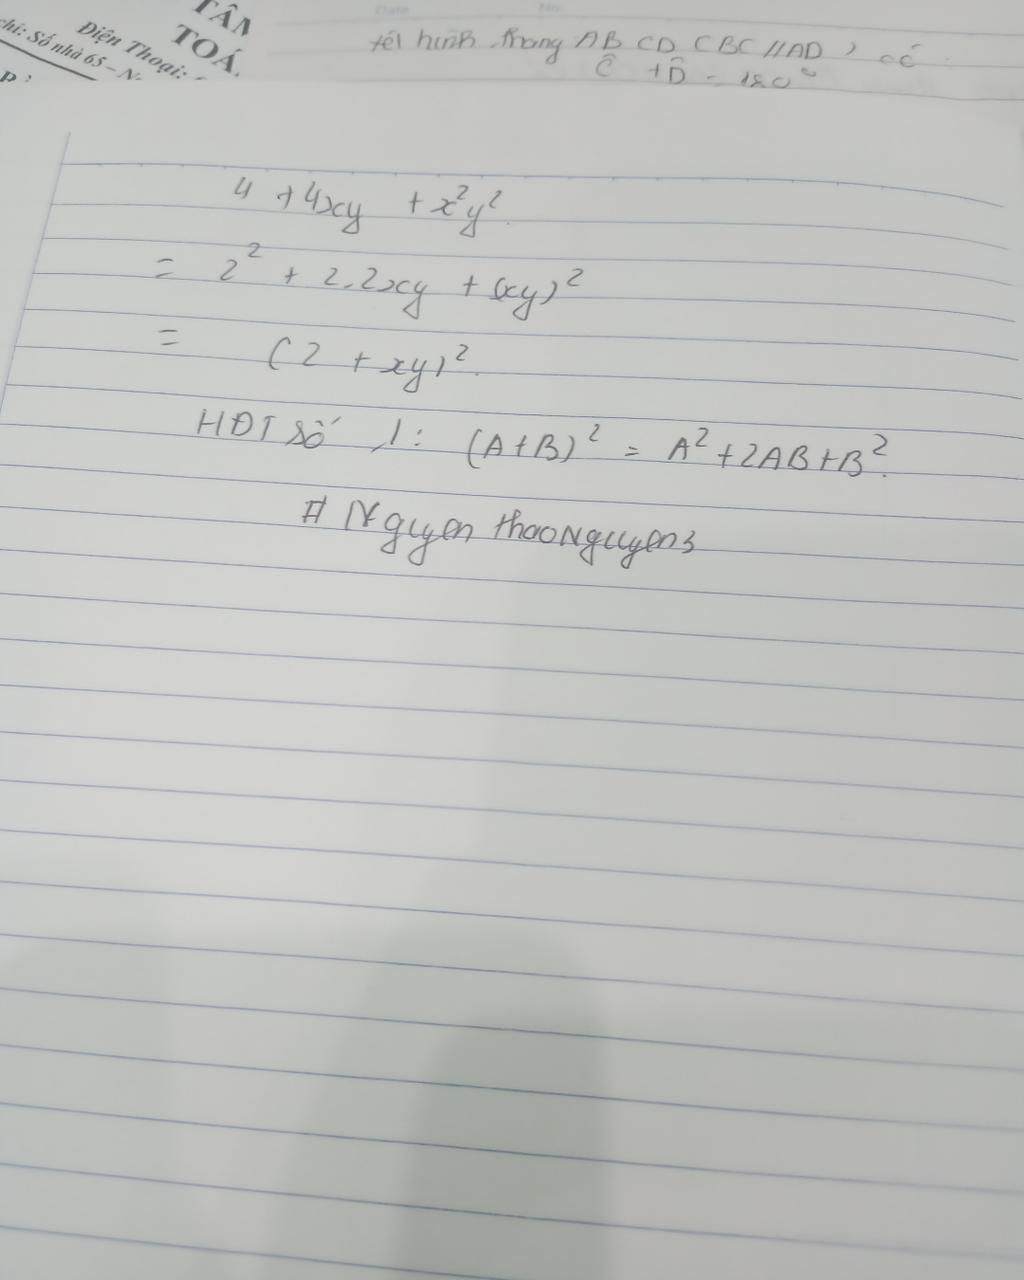 TÂN
TOÁ
Điện Thoại:
chỉ: Số nhà 65 – N
Date No.
tứ hình thang ABCD (BC//AD) có
Ĉ + D̂ = 180°
4 + 4xy + x²y².
= 2² + 2.2xy + (xy)²
= (2 + xy)².
HĐT số 1: (A+B)² = A² + 2AB + B².
# Nguyen thaoNguyen3